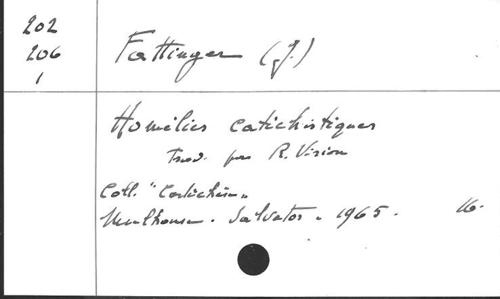 202
206
1
Fattinger (J.)
Homélies catéchistiques
Trad. par R. Virion
Coll. "Catéchèse"
Mulhouse. Salvator. 1965. 16.